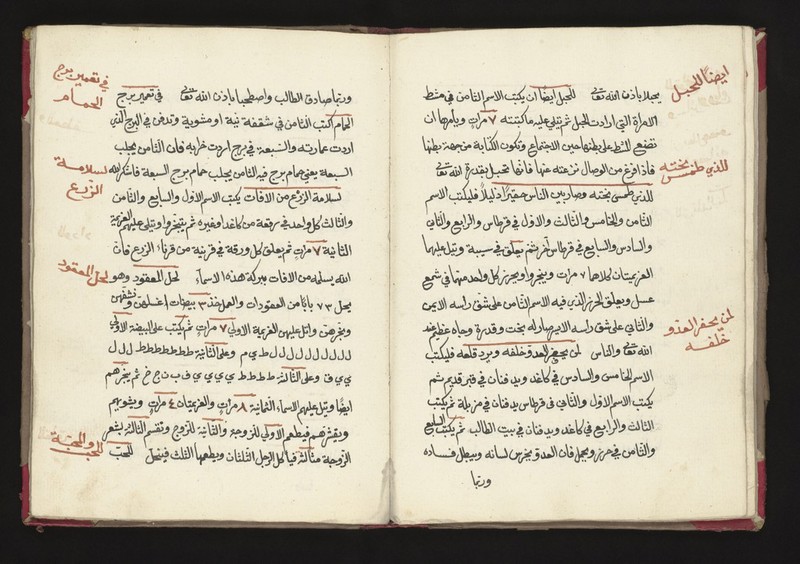 يحبلا باذن الله تعالى للحبل ايضاً ان يكتب الاسم الثامن في مشط
الامراة التي ارادت الحبل ثم يتلي عليه ما كتبته ٧ مرات ويأمرها ان
تضع المشط على بطنها حين الاجتماع وتكون الكتابة من جهة بطنها
فاذا فرغ من الوصال نزعته عنها فانها تحبل بقدرة الله تعالى
للذي طمس بخته وصار بين الناس حقيراً ذليلاً فليكتب الاسم
الثامن والخامس والثالث والاول في قرطاس والرابع والثاني
والسادس والسابع في قرطاس اخر ثم يعلق في سيبة ويتل عليها
العزيمتان كلاهما ٧ مرات ويبخروا ويحرز كل واحد منها في شمع
عسل ويعلق الحرز الذي فيه الاسم الثامن على شق راسه الايمن
والثاني على شق راسه الايسر صار له بخت وقدرة وجاه عظيم عند
الله تعالى والناس لمن يحفر العدو خلفه ويرد قلعه فليكتب
الاسم الخامس والسادس في كاغد ويدفنان في قبر قديم ثم
يكتب الاسم الاول والثاني في قرطاس يدفنان في مزبلة ثم يكتب
الثالث والرابع في كاغد ويدفنان في بيت الطالب ثم يكتب السابع
والثامن في حرز ويحمل فان العدو يخرس لسانه ويبطل فساده
وربما
ايضاً للحبل
للذي طمس بخته
لمن يحفر العدو
خلفه
وربما صادق الطالب واصطحبا باذن الله تعالى في تعمير برج
الحمام اكتب الثامن في شقفة نية او مشوية وتدفن في البرج الذي
اردت عمارته والسبعة في برج اردت خرابه فان الثامن يجلب
السبعة يعني حمام برج فيه الثامن يجلب حمام برج السبعة فاشكر الله
لسلامة الزرع من الافات يكتب الاسم الاول والسابع والثامن
والثالث كل واحد في رقعة من كاغد وغيره ثم يبخروا ويتلى عليهم العزيمة
الثانية ٧ مرات ثم يعلق كل ورقة في قرنية من قرناء الزرع فان
الله يسلمه من الافات ببركة هذه الاسماء لحل المعقود وهو
يحل ٧٣ بابا من العقودات والعمل خذ ٣ بيضات اغسلهن ونشفهن
وبخرهن واتل عليهن العزيمة الاولى ٧ مرات ثم يكتب على البيضة الاولى
ل ل ل ل ل ل ل ل ل ط ي م وعلى الثانية ط ط ط ط ط ط ط ل ل ل
ي ي ق وعلى الثالثة ط ط ط ط ي ي ي ي ف ب ن ج خ خ ثم يبخرهم
ايضا ويتل عليهم الاسماء الثمانية ٨ مرات والعزيمتان ٤ مرات ويشويهم
ويقشرهم فيطعم الاولى للزوجة والثانية للزوج وتقسم الثالثة بشعر
الزوجة مثالثة فياكل الرجل الثلثان ويطعمها الثلث فينحل للحب
في تعمير برج
الحمام
لسلامة
الزرع
لحل المعقود
للحب والمحبة